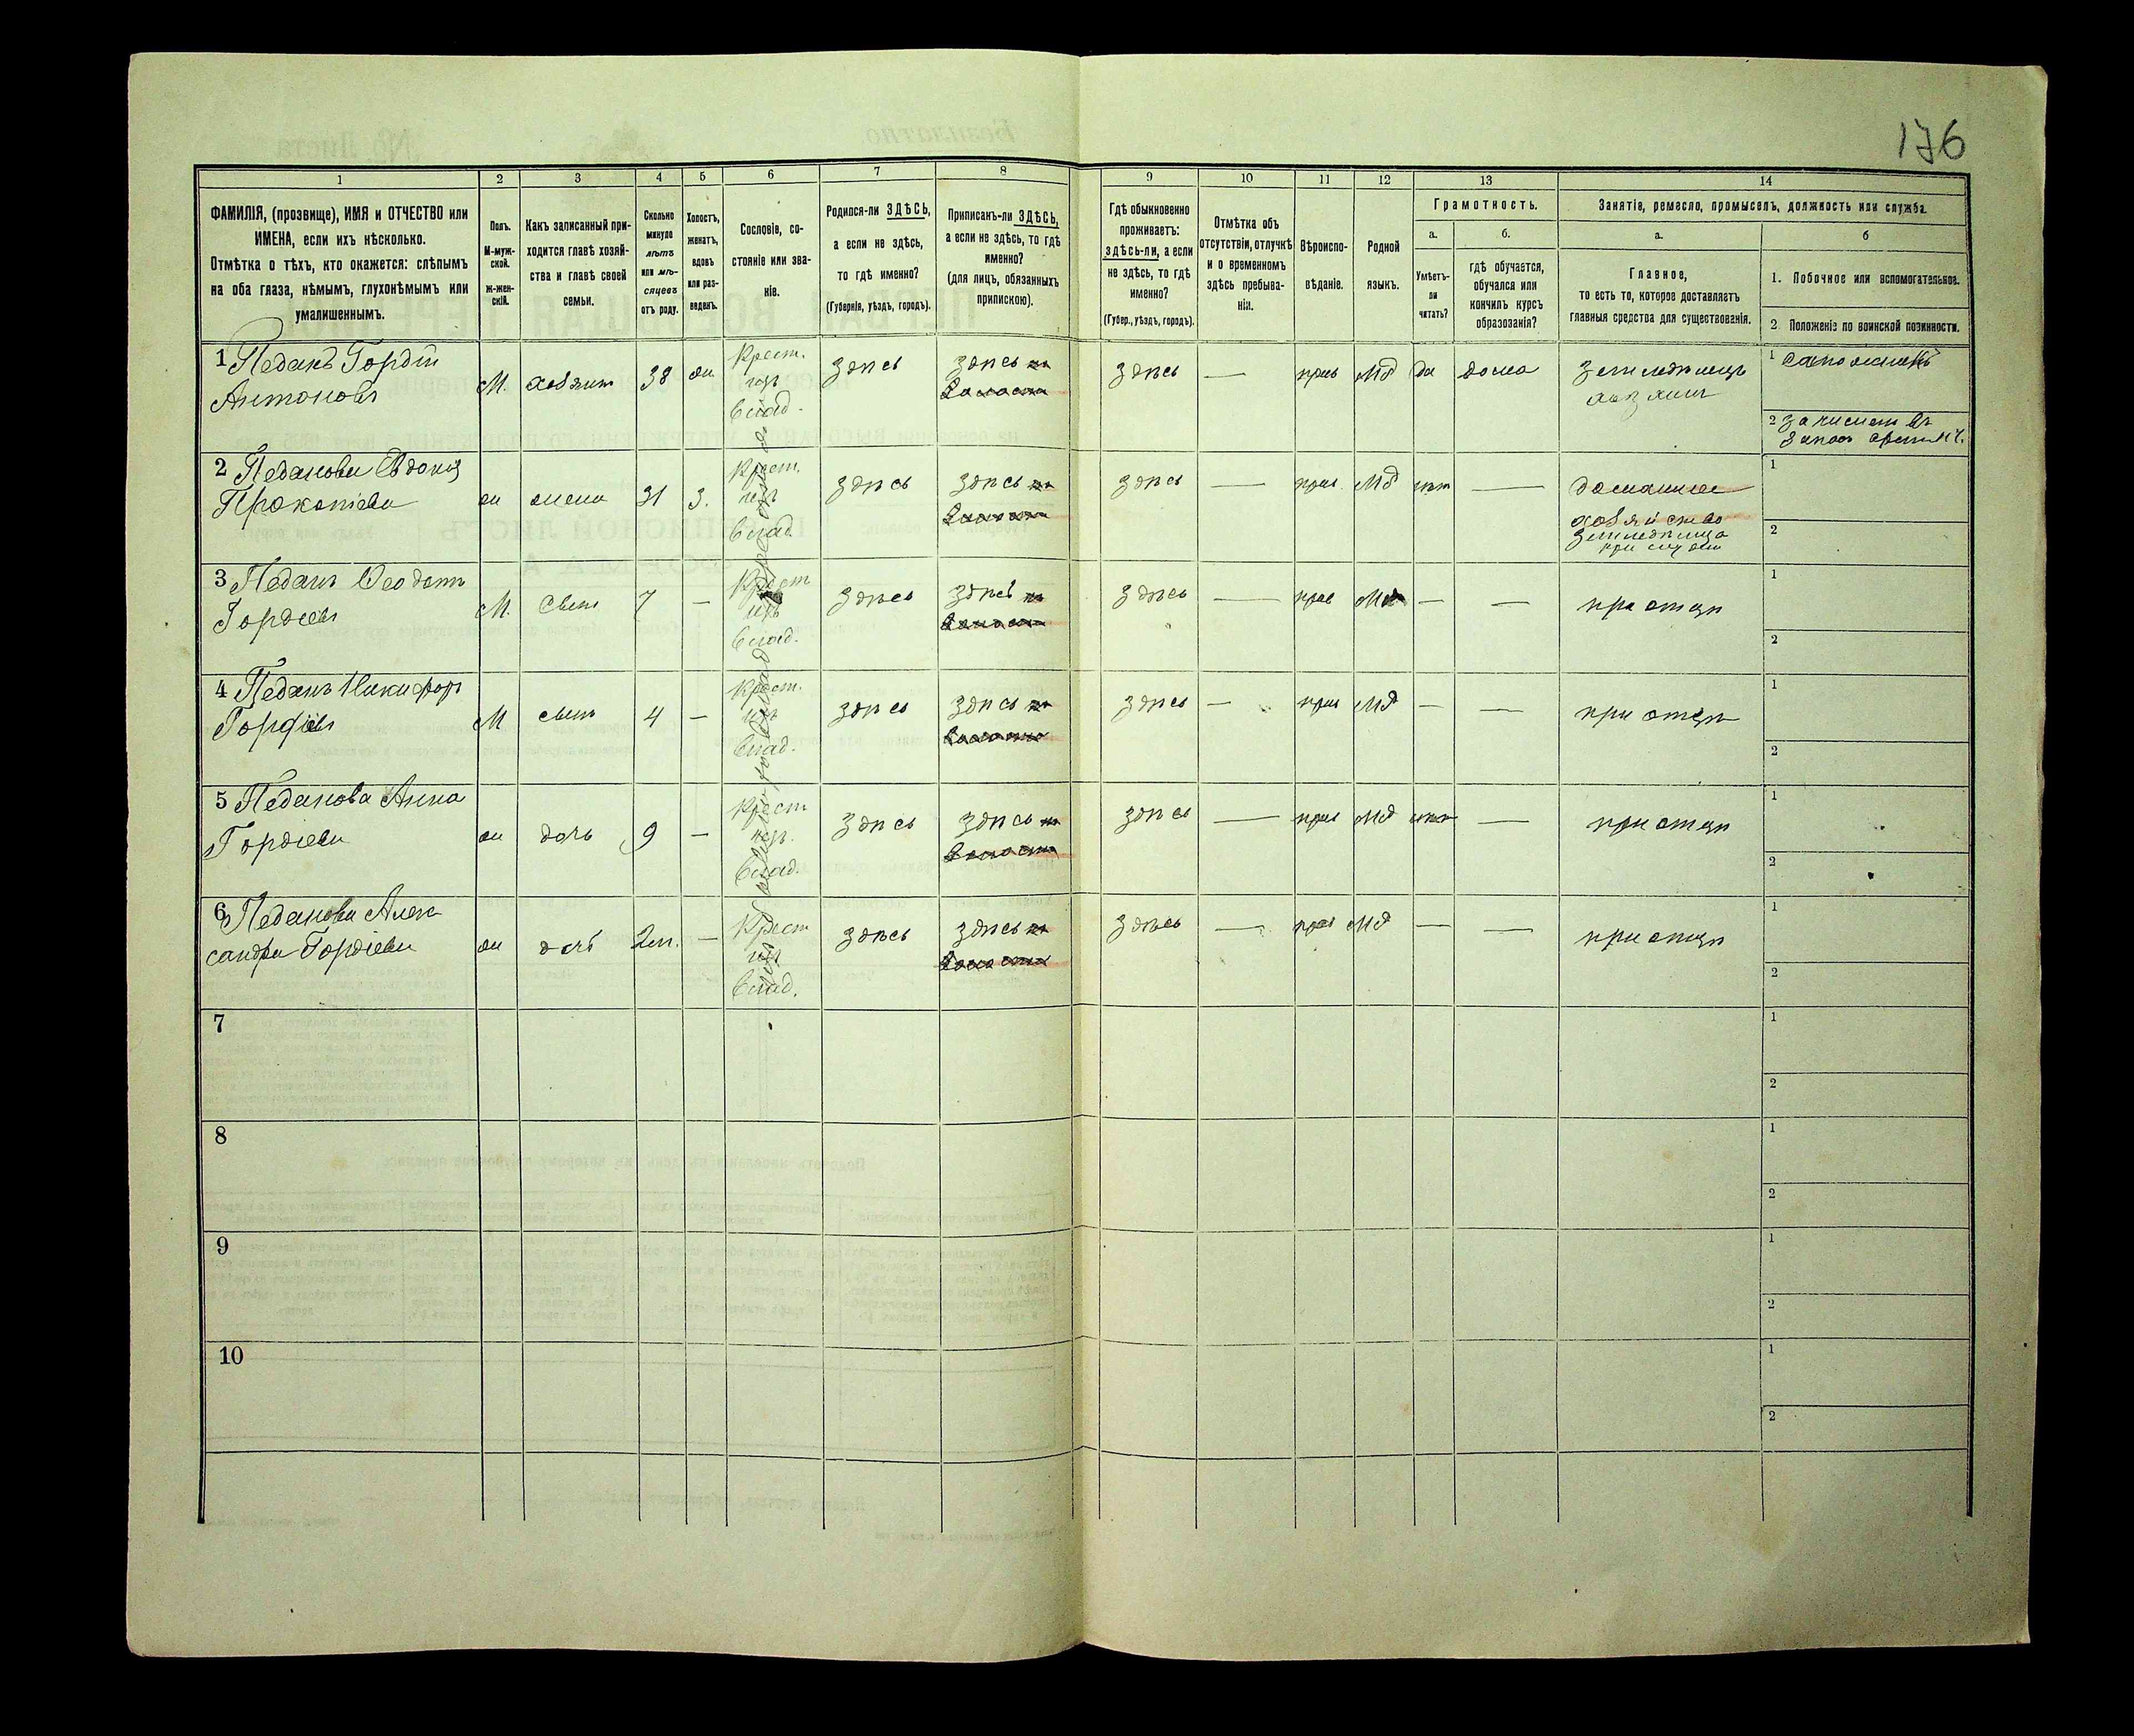 176
1 2 3 4 5 6 7 8 9 10 11 12 13 14
ФАМИЛІЯ, (прозвище), ИМЯ и ОТЧЕСТВО или
ИМЕНА, если ихъ нѣсколько.
Отмѣтка о тѣхъ, кто окажется: слѣпымъ
на оба глаза, нѣмымъ, глухонѣмымъ или
умалишеннымъ.
Полъ.
М-муж-
ской.
ж-жен-
скій.
Какъ записанный при-
ходится главѣ хозяй-
ства и главѣ своей
семьи.
Сколько
минуло
лѣтъ
или мѣ-
сяцевъ
отъ роду.
Холостъ,
женатъ,
вдовъ
или раз-
веденъ.
Сословіе, со-
стояніе или зва-
ніе.
Родился-ли ЗДѢСЬ,
а если не здѣсь,
то гдѣ именно?
(Губернія, уѣздъ, городъ).
Приписанъ-ли ЗДѢСЬ,
а если не здѣсь, то гдѣ
именно?
(для лицъ, обязанныхъ
припискою).
Гдѣ обыкновенно
проживаетъ:
здѣсь-ли, а если
не здѣсь, то гдѣ
именно?
(Губер., уѣздъ, городъ).
Отмѣтка объ
отсутствіи, отлучкѣ
и о временномъ
здѣсь пребыва-
ніи.
Вѣроиспо-
вѣданіе.
Родной
языкъ.
Грамотность.
а.
Умѣетъ-
ли
читать?
б.
гдѣ обучается,
обучался или
кончилъ курсъ
образованія?
Занятіе, ремесло, промыселъ, должность или служба.
а.
Главное,
то есть то, которое доставляетъ
главныя средства для существованія.
б
1. Побочное или вспомогательное.
2. Положеніе по воинской повинности.
1 Педанъ Гордій
Антоновъ
М. хозяин 38 ж
Крест.
изъ
влад.
здѣсь здѣсь
здѣсь — прав Мд да дома
земледѣлецъ
хозяинъ
1 сапожникъ
2 зачислен въ
запас
2 Педанова Евдокія
Прокопіева
ж жена 31 З.
Крест.
изъ
влад.
здѣсь здѣсь
здѣсь — прав. Мд нѣт —
домашнее
хозяйство
земледѣлица
1
2
3 Педанъ Ѳеодотъ
Гордіевъ
М. сынъ 7 —
Крест
изъ
влад.
здѣсь здѣсь
здѣсь — прав Мд — — при отцѣ
1
2
4 Педанъ Никифоръ
Гордіевъ
М сынъ 4 —
Крест.
изъ
влад.
здѣсь здѣсь
здѣсь — прав Мд — — при отцѣ
1
2
5 Педанова Анна
Гордіева
ж дочь 9 —
Крест
изъ.
влад.
здѣсь здѣсь
здѣсь — прав Мд нѣт — при отцѣ
1
2
6 Педанова Алек
сандра Гордіева
ж дочь 2 м. —
Крест
изъ
влад.
здѣсь здѣсь
здѣсь — прав Мд — — при отцѣ
1
2
7
1
2
8
1
2
9
1
2
10
1
2